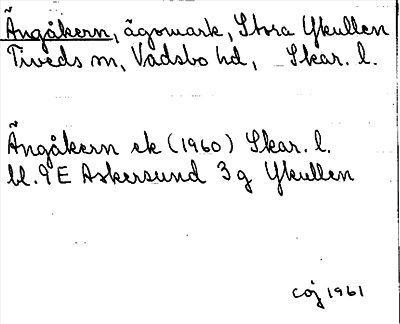 Ängåkern, ägomark, Stora Ykullen
Tiveds sn, Vadsbo hd, Skar. l.
Ängåkern ek (1960) Skar. l.
bl. 9E Askersund 3g Ykullen
COJ 1961